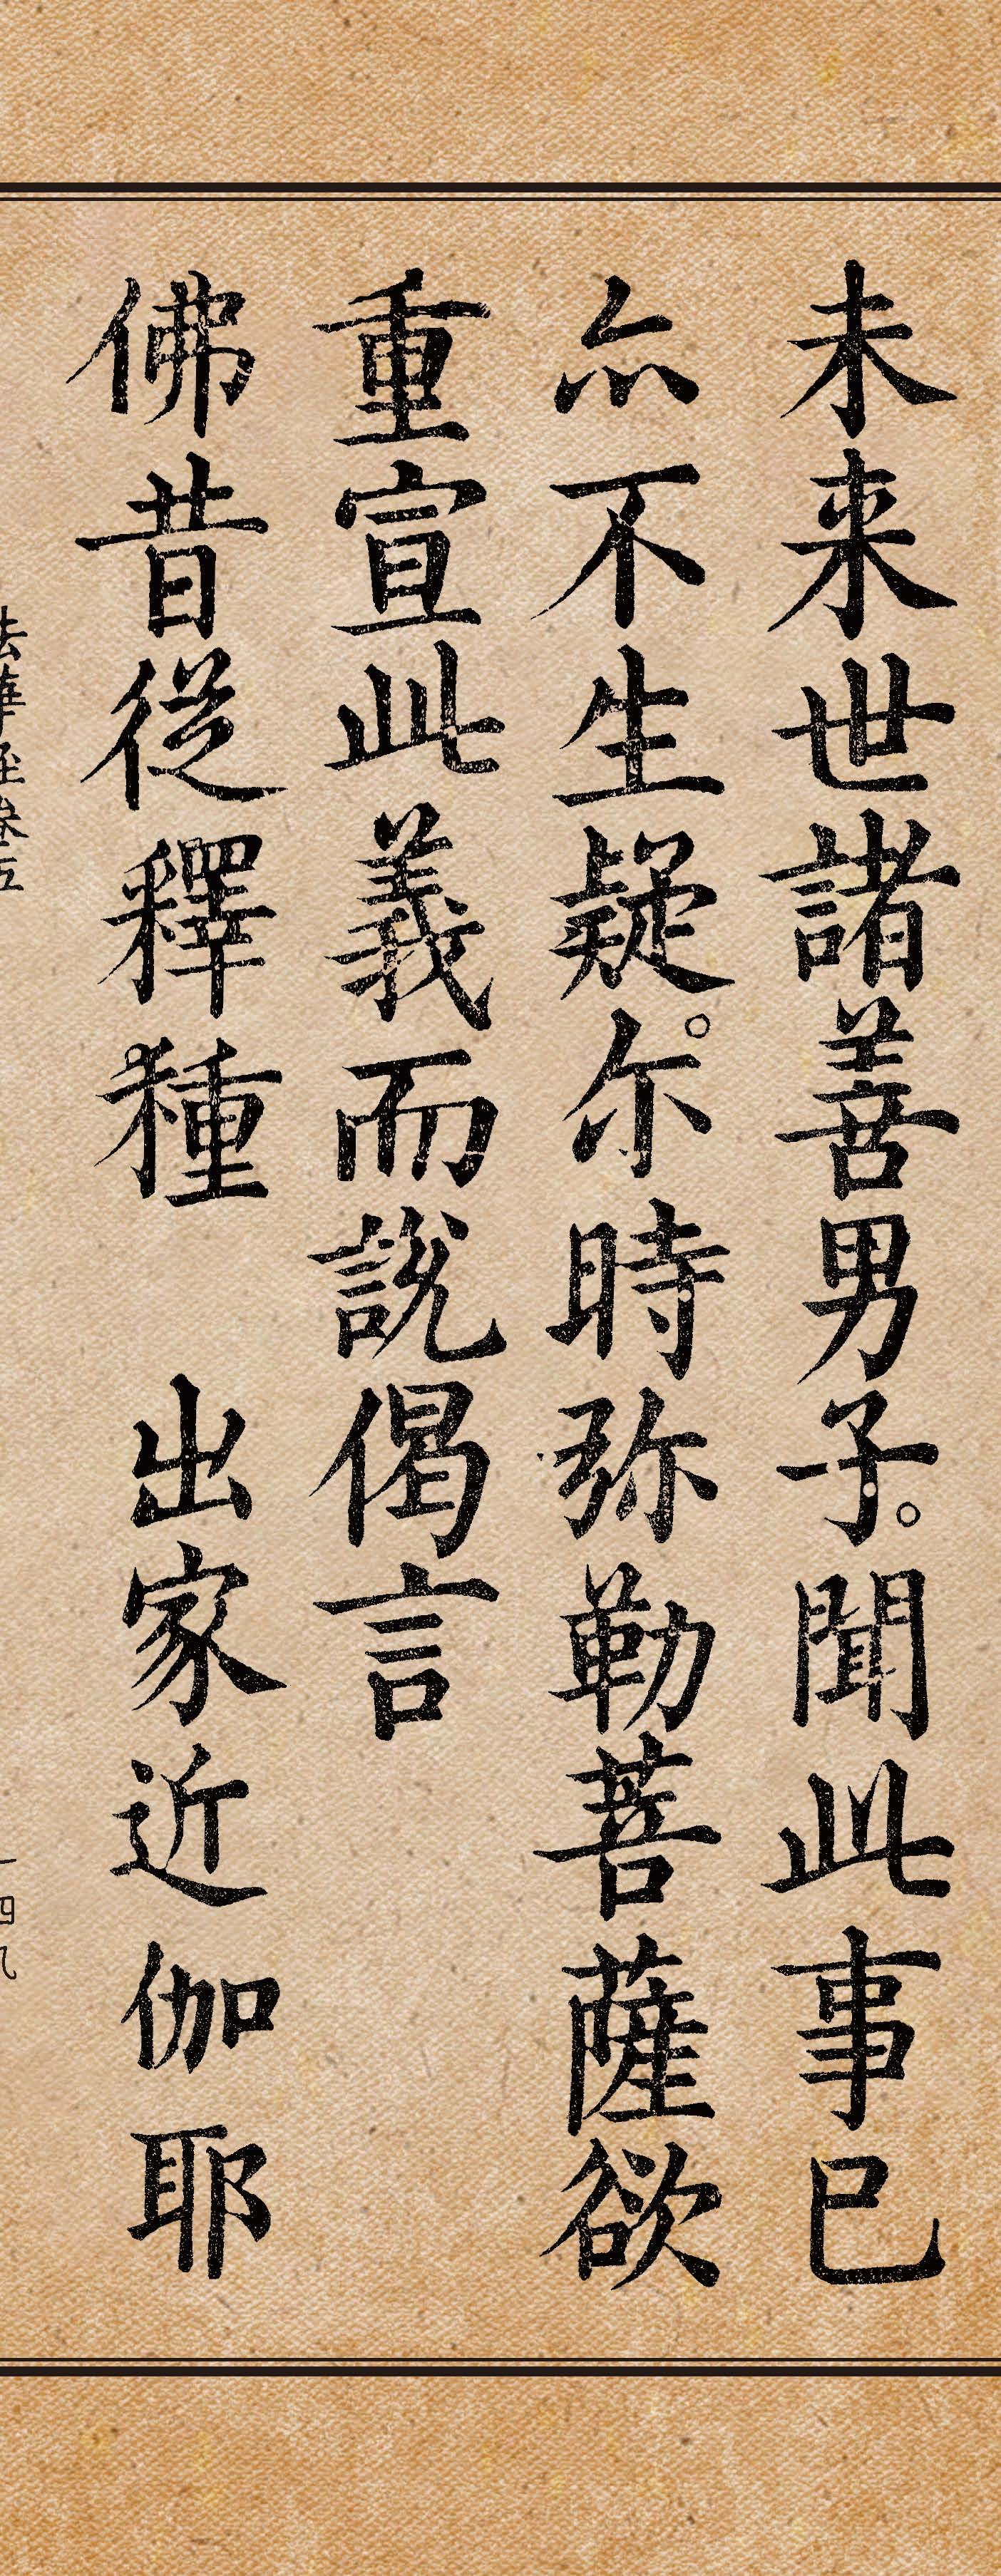 未来世諸善男子。聞此事已
亦不生疑。尓時弥勒菩薩欲
重宣此義而說偈言
佛昔從釋種　出家近伽耶